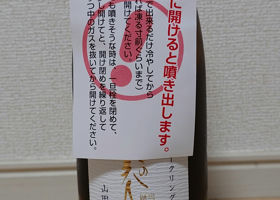 に開けると噴き出します。
で出来るだけ冷やしてから
ば凍る寸前ぐらいまで)
開けてください。
も噴きそうな時は、一旦栓を閉めて、
し開けてと、開け閉めを繰り返して
つ中のガスを抜いてから開けてください。
ークリング
山田